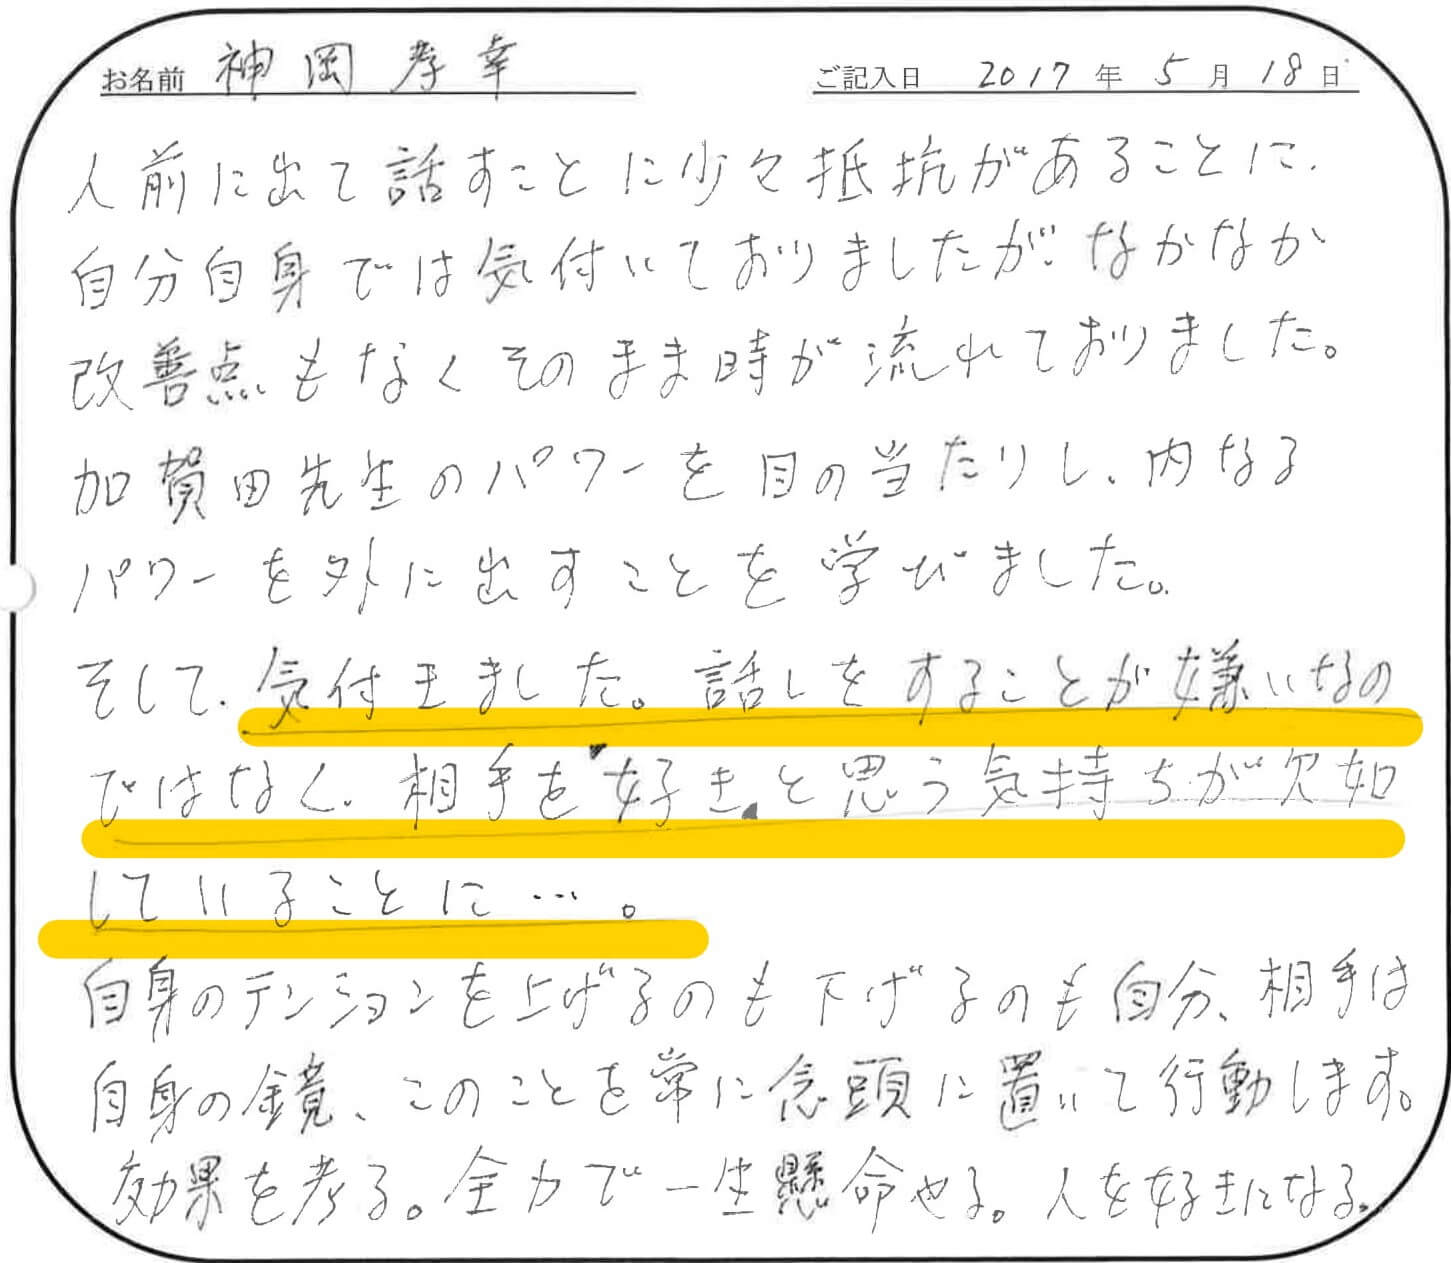 お名前 神岡孝幸 ご記入日 2017年5月18日
人前に出て話すことに少々抵抗があることに、
自分自身では気付いておりましたが、なかなか
改善点もなくそのまま時が流れておりました。
加賀田先生のパワーを目の当たりし、内なる
パワーを外に出すことを学びました。
そして、気付きました。話しをすることが嫌いなの
ではなく、相手を"好き"と思う気持ちが欠如
していることに…。
自身のテンションを上げるのも下げるのも自分、相手は
自身の鏡、このことを常に念頭に置いて行動します。
効果を考る。全力で一生懸命やる。人を好きになる。